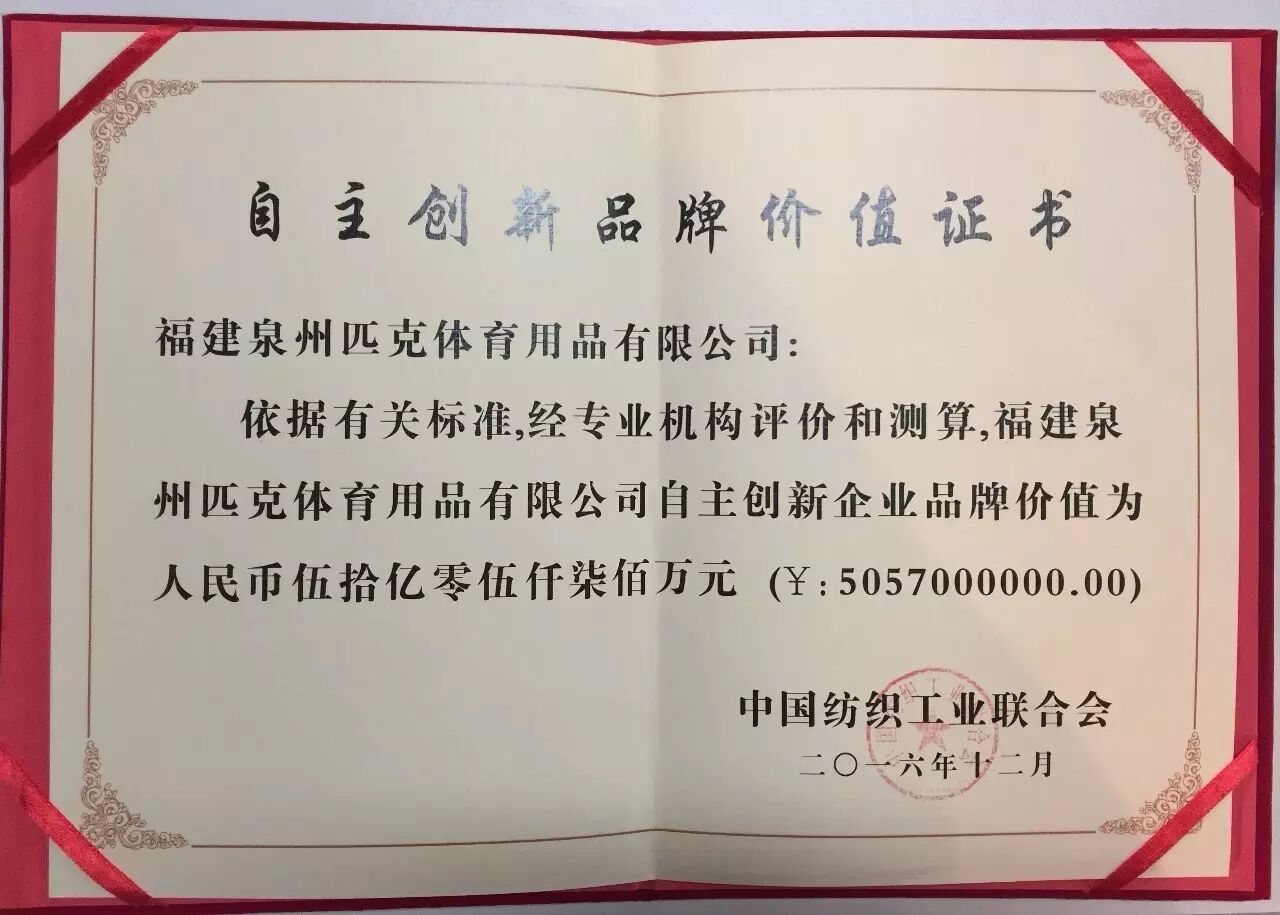 自主创新品牌价值证书
福建泉州匹克体育用品有限公司:
依据有关标准,经专业机构评价和测算,福建泉
州匹克体育用品有限公司自主创新企业品牌价值为
人民币伍拾亿零伍仟柒佰万元 (￥:5057000000.00)
中国纺织工业联合会
二〇一六年十二月